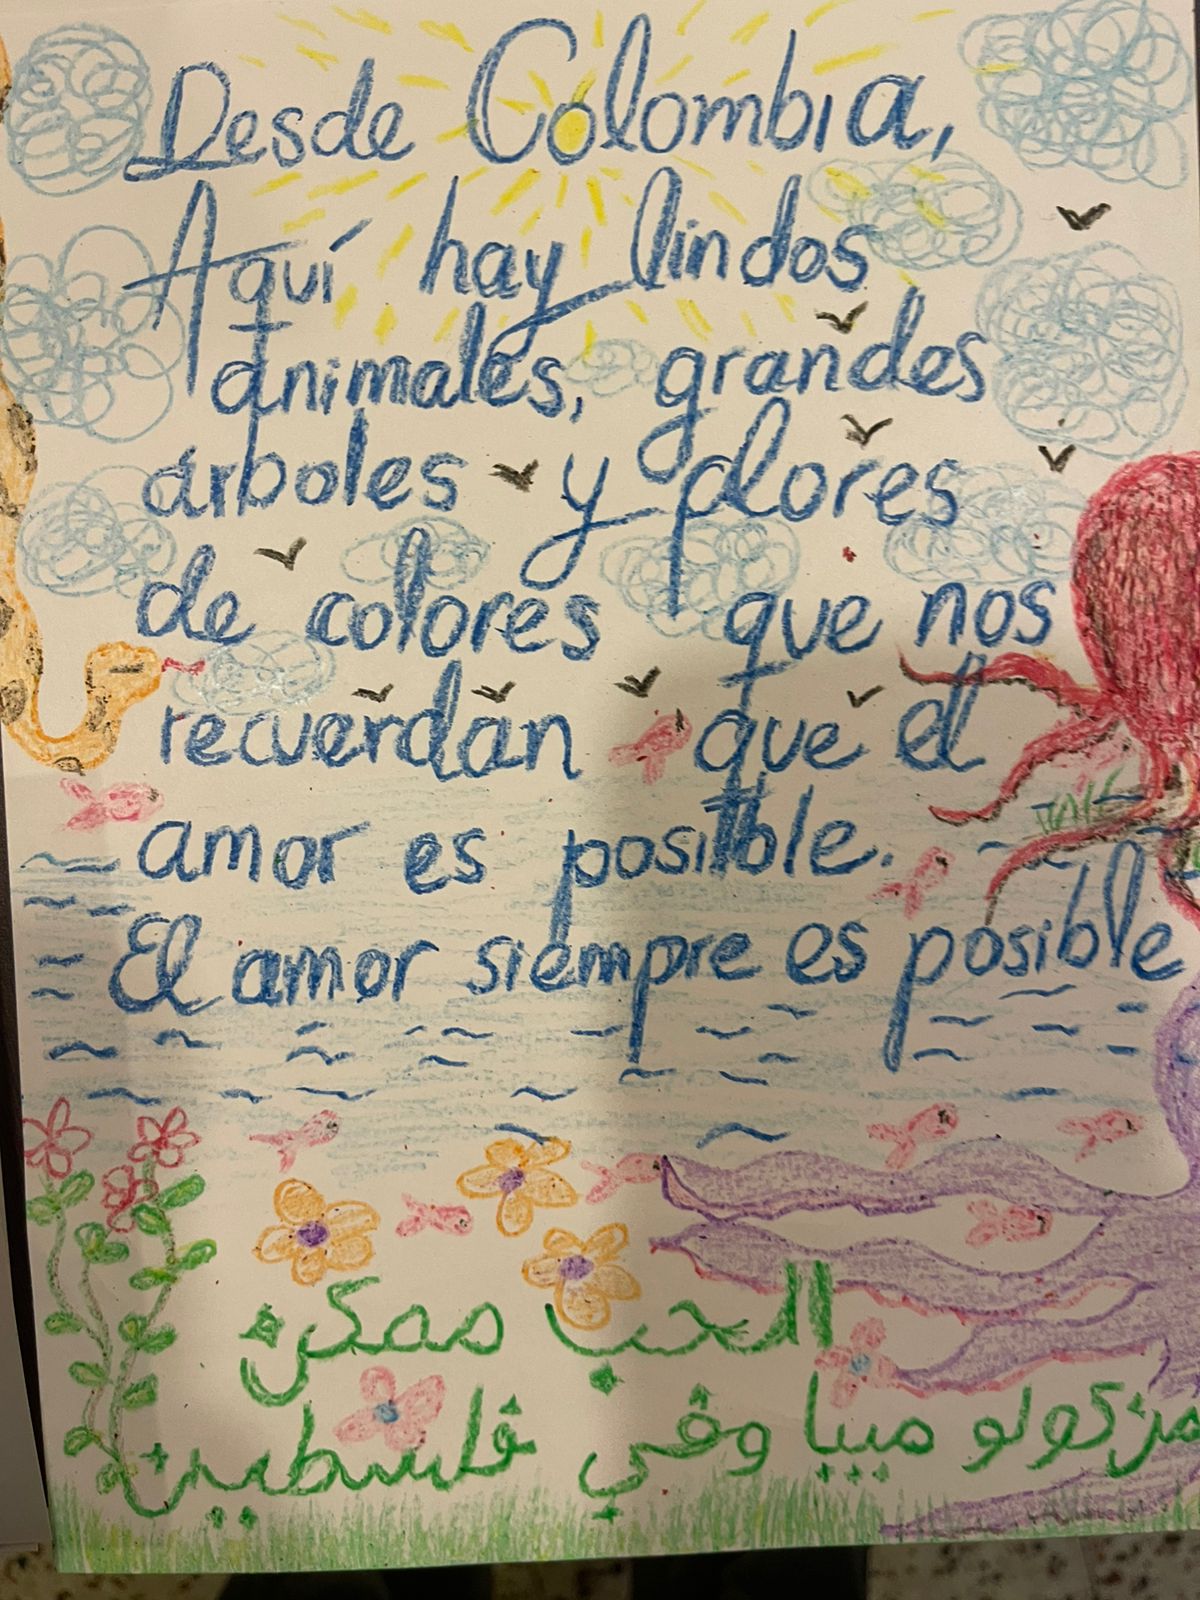 Desde Colombia,
Aquí hay lindos
animales, grandes
árboles y flores
de colores que nos
recuerdan que el
amor es posible.
El amor siempre es posible
الحب ممكن
من كولومبيا وفي فلسطين